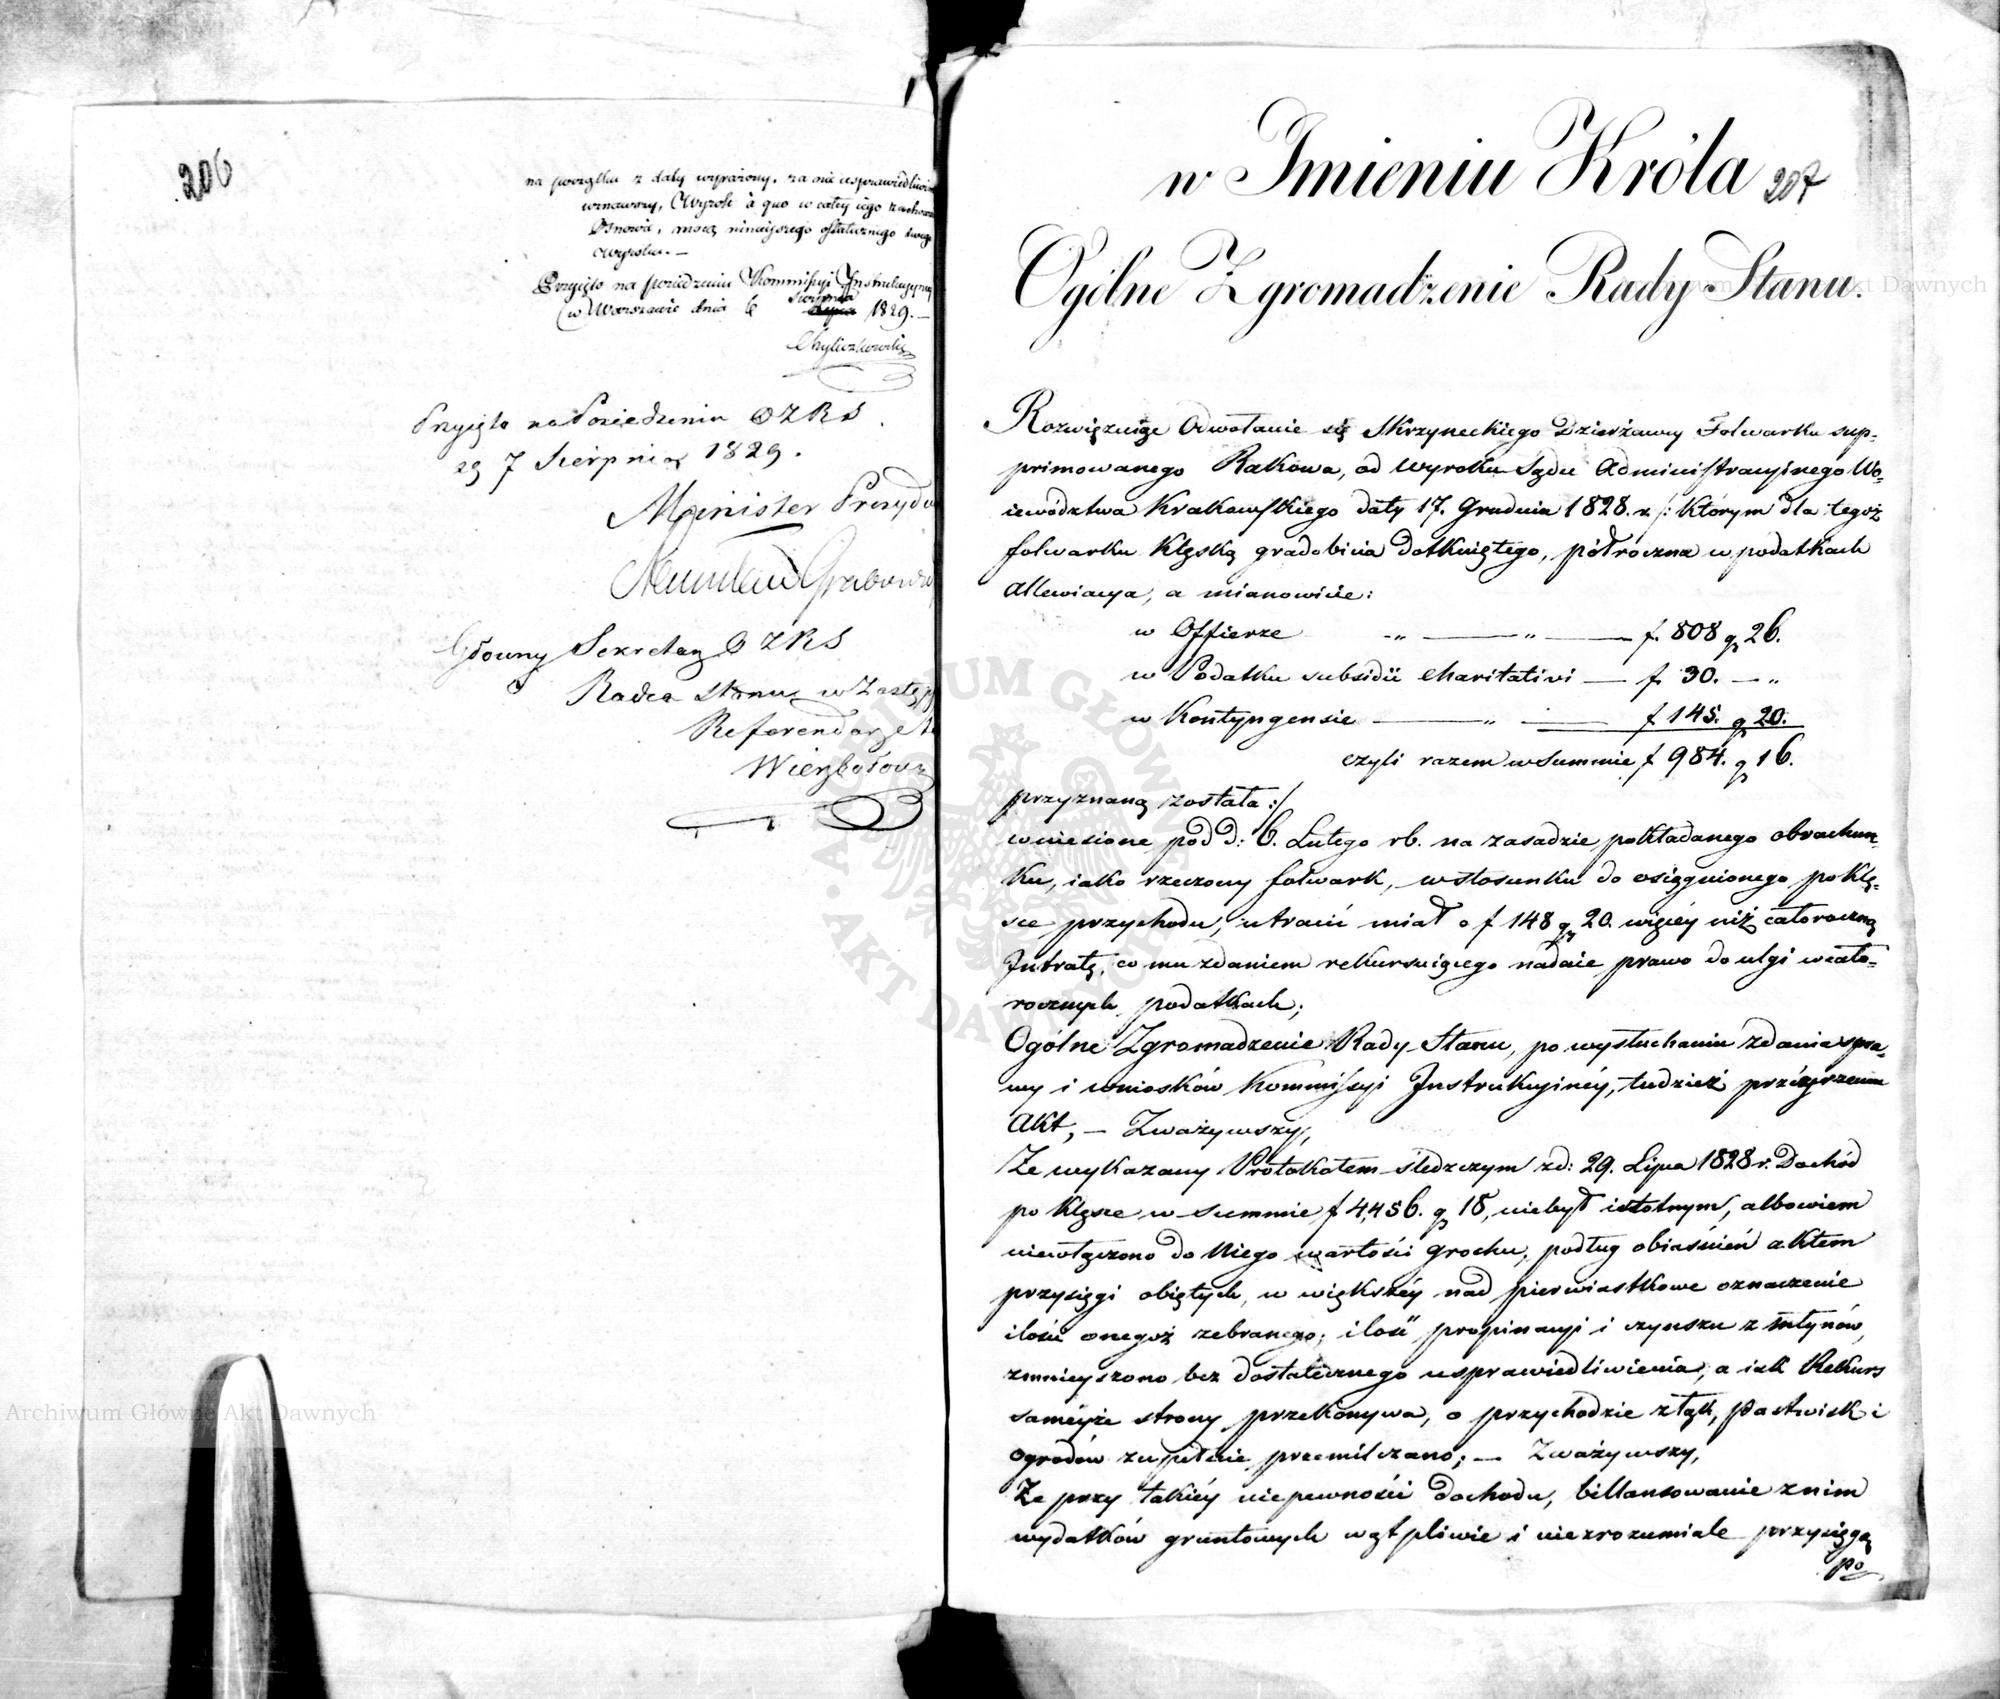 206
na początku z daty wyrażony, za nieusprawiedliwiony
uznawszy, Wyrok à quo w całey iego
Osnowie, mocą ninieyszego ostatecznego swego
wyroku. —
Przyięto na posiedzeniu Kommissyi Instrukcyiney
w Warszawie dnia 6 Sierpnia 1829. —
Przyięto na Posiedzeniu O Z R S
dd 7 Sierpnia 1829.
Minister Prezydu
Grabowski
Główny Sekretarz O Z R S
Radca Stanu w Zastęp
Referendarz
w Imieniu Króla
207
Ogólne Zgromadzenie Rady Stanu.
Rozwiązuiąc Odwołanie się Skrzyneckiego Dzierżawcy Folwarku sup-
primowanego Rakowa, od Wyroku Sądu Administracyinego Wo-
iewództwa Krakowskiego daty 17. Grudnia 1828. r. /: którym dla tegoż
folwarku klęską gradobicia dotkniętego, półroczna w podatkach
allewiacya, a mianowicie:
w Offierze -„- — „ — f. 808 gr 26.
w Podatku subsidii charitativi — f. 30. — „
w Kontyngensie — „ — f 145. gr 20.
czyli razem w Summie f 984. gr 16.
przyznaną została :/
wniesione pod d: 6. Lutego rb. na zasadzie pokładanego obrachun-
ku, iako rzeczony folwark, w stosunku do osiągnionego po klę-
sce przychodu, utracić miał o f 148 gr 20. więcéy niż całoroczną
Intratę, co mu zdaniem rekursuiącego nadaie prawo do ulgi w cało-
rocznych podatkach;
Ogólne Zgromadzenie Rady Stanu, po wysłuchaniu zdania spra-
wy i wniosków Kommissyi Instrukcyinéy, tudzież przéyrzeniu
Akt, — Zważywszy,
Że wykazany Protokołem śledczym z d: 29. Lipca 1828 r. Dochód
po klęsce w summie f 4,456. gr 18, niebył istotnym, albowiem
niewłączono do Niego wartości grochu, podług obiaśnień aktem
przysięgi obiętych, w większéy nad pierwiastkowe oznaczenie
ilości onegoż zebranego; ilość propinacyi i czynszu z młynów
zmnieyszono bez dostatecznego usprawiedliwienia, a iak Rekurs
saméyże strony przekonywa, o przychodzie z łąk, pastwisk i
ogrodów zupełnie przemilczano; — Zważywszy,
Że przy takiéy niepewności dochodu, billansowanie z nim
wydatków gruntowych wątpliwie i niezrozumiale przysięgą
po
Archiwum Główne Akt Dawnych